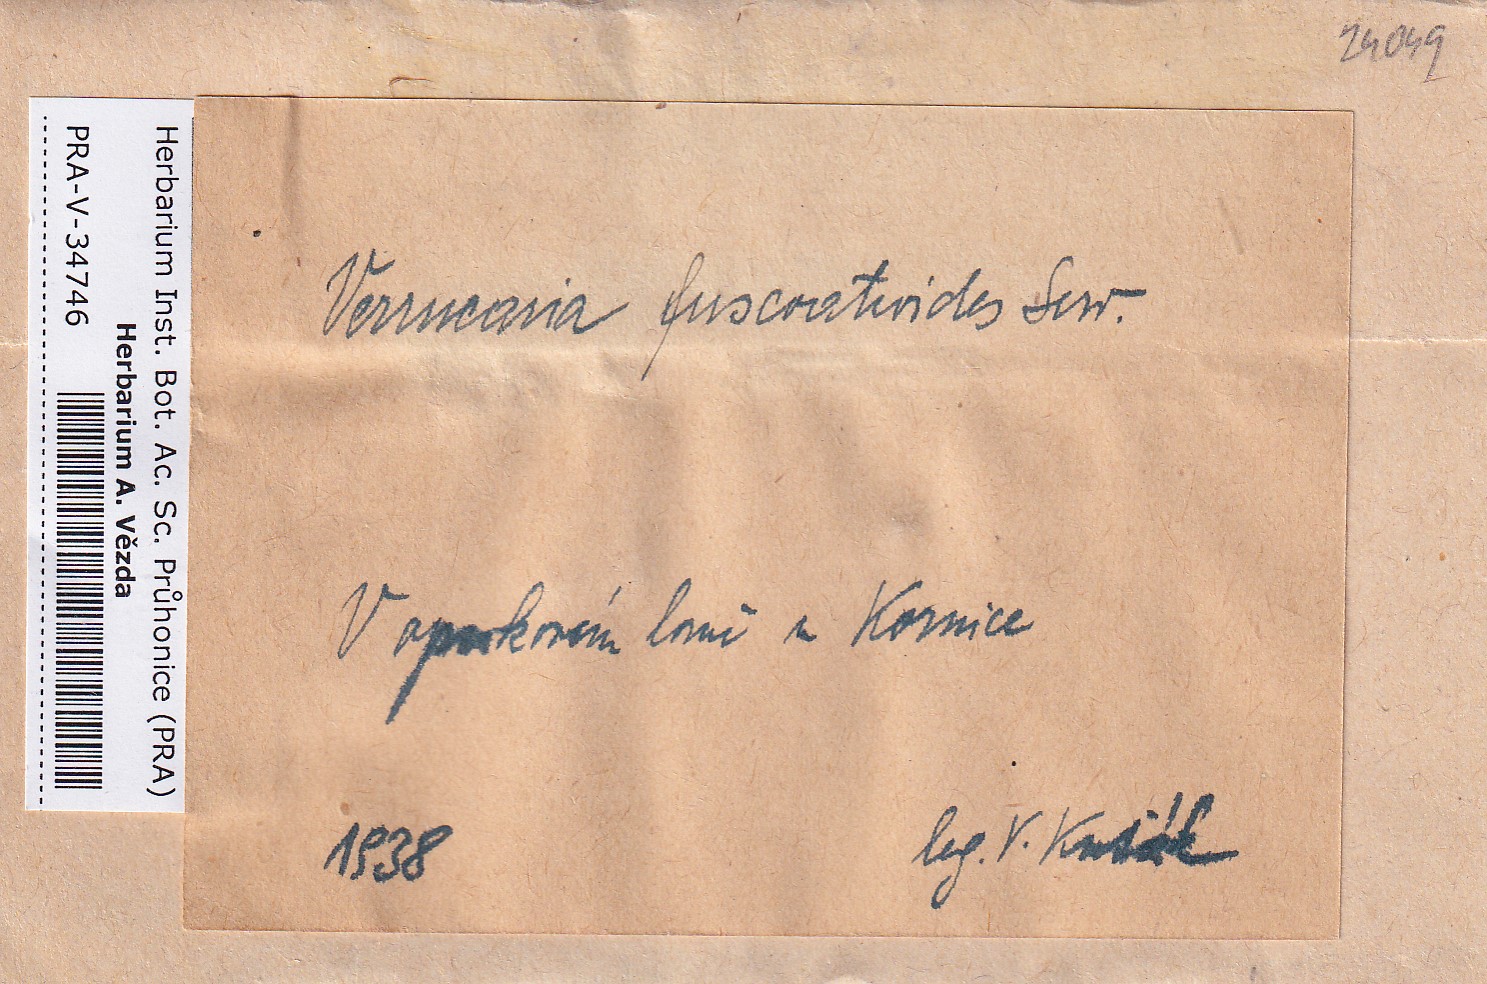 24049
Herbarium Inst. Bot. Ac. Sc. Průhonice (PRA)
Herbarium A. Vězda
PRA-V-34746
Verrucaria fuscoatroides Serv.
V opukovém lomě u Kornice
1938
leg. V. Kuťák